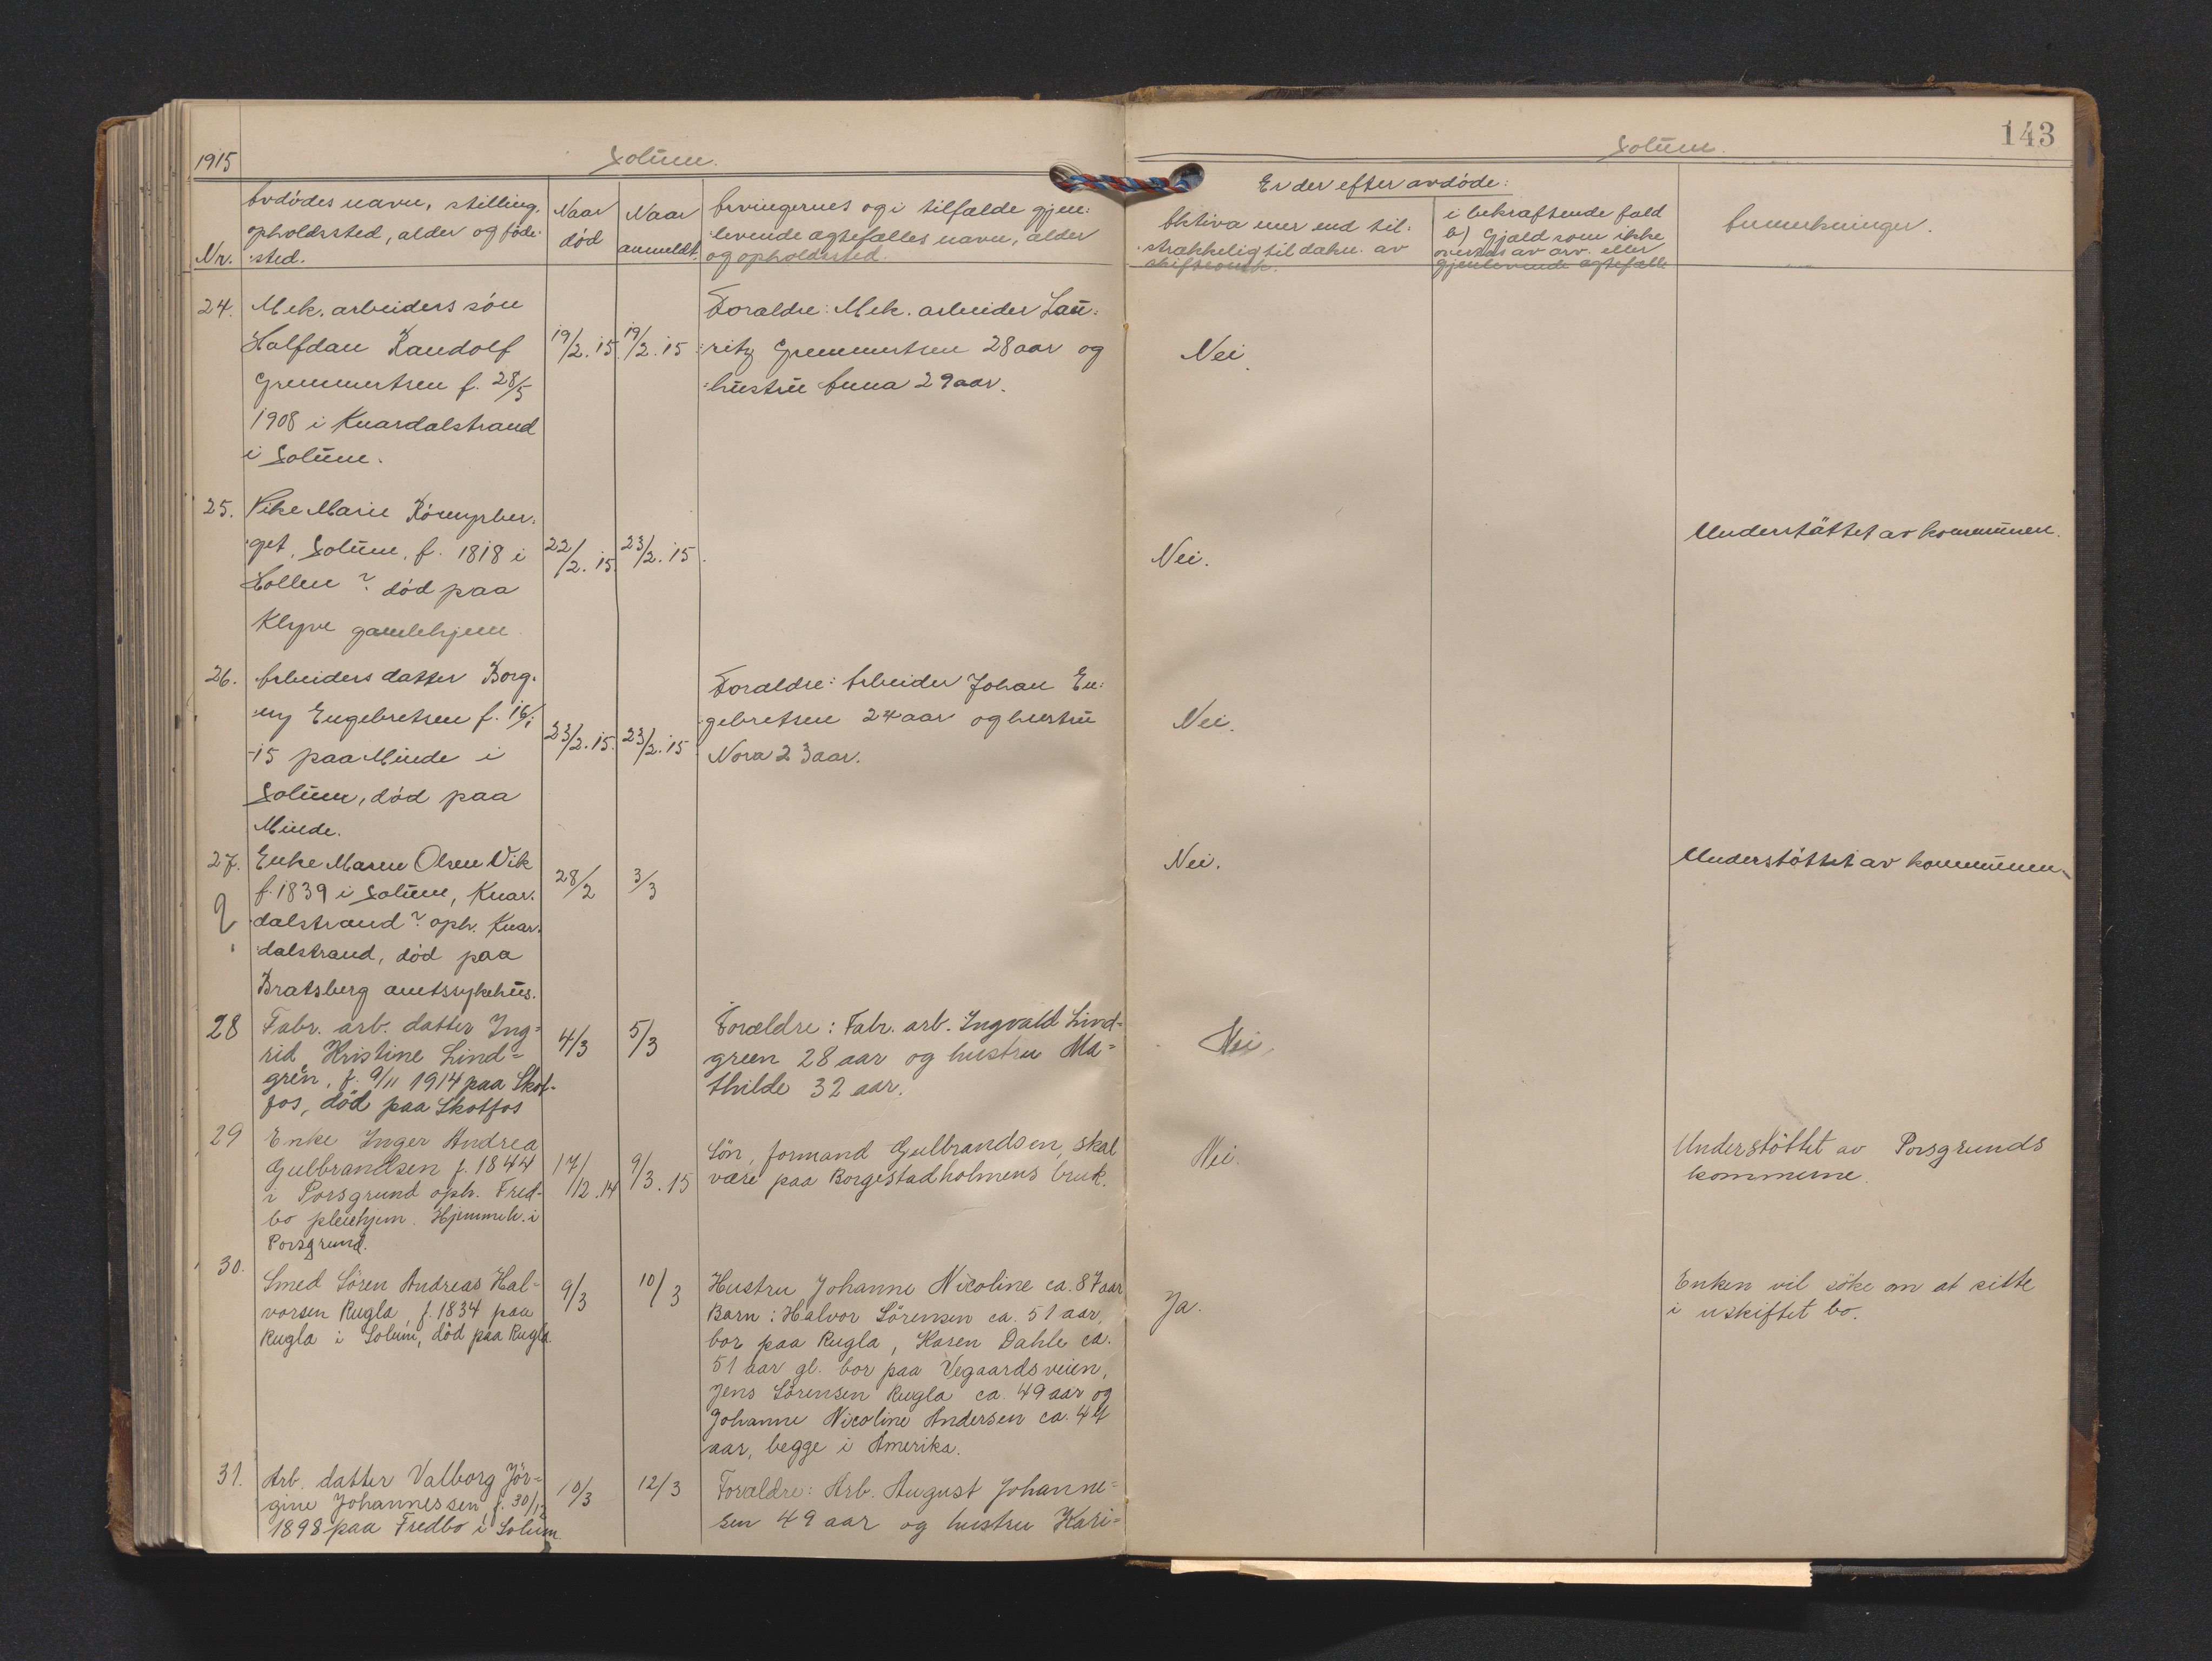 1915
Solum.
Nr.
Avdødes navn, stilling,
opholdssted, alder og føde-
sted.
Naar
død
Naar
anmeldt.
Arvingernes og i tilfælde gjen-
levende ægtefælles navn, alder
og opholdssted.
24.
Mek. arbeiders søn
Halfdan Randolf
Gremmertsen f. 28/5
1908 i Knardalstrand
i Solum.
19/2. 15.
19/2. 15
Forældre: Mek. arbeider Lau-
ritz Gremmertsen 28 aar og
hustru Anna 29 aar.
25.
Pike Marie
get, Solum, f. 1818 i
Hollen? død paa
Klyve gamlehjem.
22/2. 15.
23/2. 15.
26.
Arbeiders datter Borg-
ny Engebretsen f. 16/1
-15 paa Minde i
Solum, død paa
Minde.
23/2. 15.
23/2. 15
Forældre: Arbeider Johan En-
gebretsen 24 aar og hustru
Nora 23 aar.
27.
?
Enke Maren Olsen Vik
f. 1839 i Solum, Knar-
dalstrand? oph. Knar-
dalstrand, død paa
Bratsberg amtssykehus.
28/2
3/3
28
Fabr. arb. datter Ing-
rid Kristine Lind-
grén, f. 9/11 1914 paa Skot-
fos, död paa Skotfos
4/3
5/3
Forældre: Fabr. arb. Ingvald Lind-
green 28 aar og hustru Ma-
thilde 32 aar.
29
Enke Inger Andrea
Gulbrandsen f. 1844
i Porsgrund oph. Fred-
bo pleiehjem. Hjemmeh. i
Porsgrund.
17/12. 14
9/3. 15
Sön, formand Gulbrandsen, skal
være paa Borgestadholmens bruk.
30.
Smed Sören Andreas Hal-
vorsen Rugla, f. 1834 paa
Rugla i Solum, död paa Rugla
9/3
10/3
Hustru Johanne Nicoline ca. 87 aar
Barn: Halvor Sörensen ca. 51 aar,
bor paa Rugla, Karen Dahle ca.
51 aar gl. bor paa Vegaardsveien,
Jens Sörensen Rugla ca. 49 aar og
Johanne Nicoline Andersen ca. 44
aar, begge i Amerika.
31.
Arb. datter Valborg Jör-
gine Johannessen f. 30/12
1898 paa Fredbo i Solum
10/3
12/3
Forældre: Arb. August Johanne-
sen 49 aar og hustru Kari-
143
Solum.
Er der efter avdøde:
Aktiva mer end til-
strækkelig til dækn. av
skifteomk.
i bekræftende fald
b) Gjæld som ikke
overtas av arv. eller
gjenlevende ægtefælle
Anmerkninger.
Nei.
Nei.
Understøttet av kommunen.
Nei.
Nei.
Understøttet av kommunen.
Nei
Nei.
Understöttet av Porsgrunds
kommune.
Ja.
Enken vil söke om at sitte
i uskiftet bo.